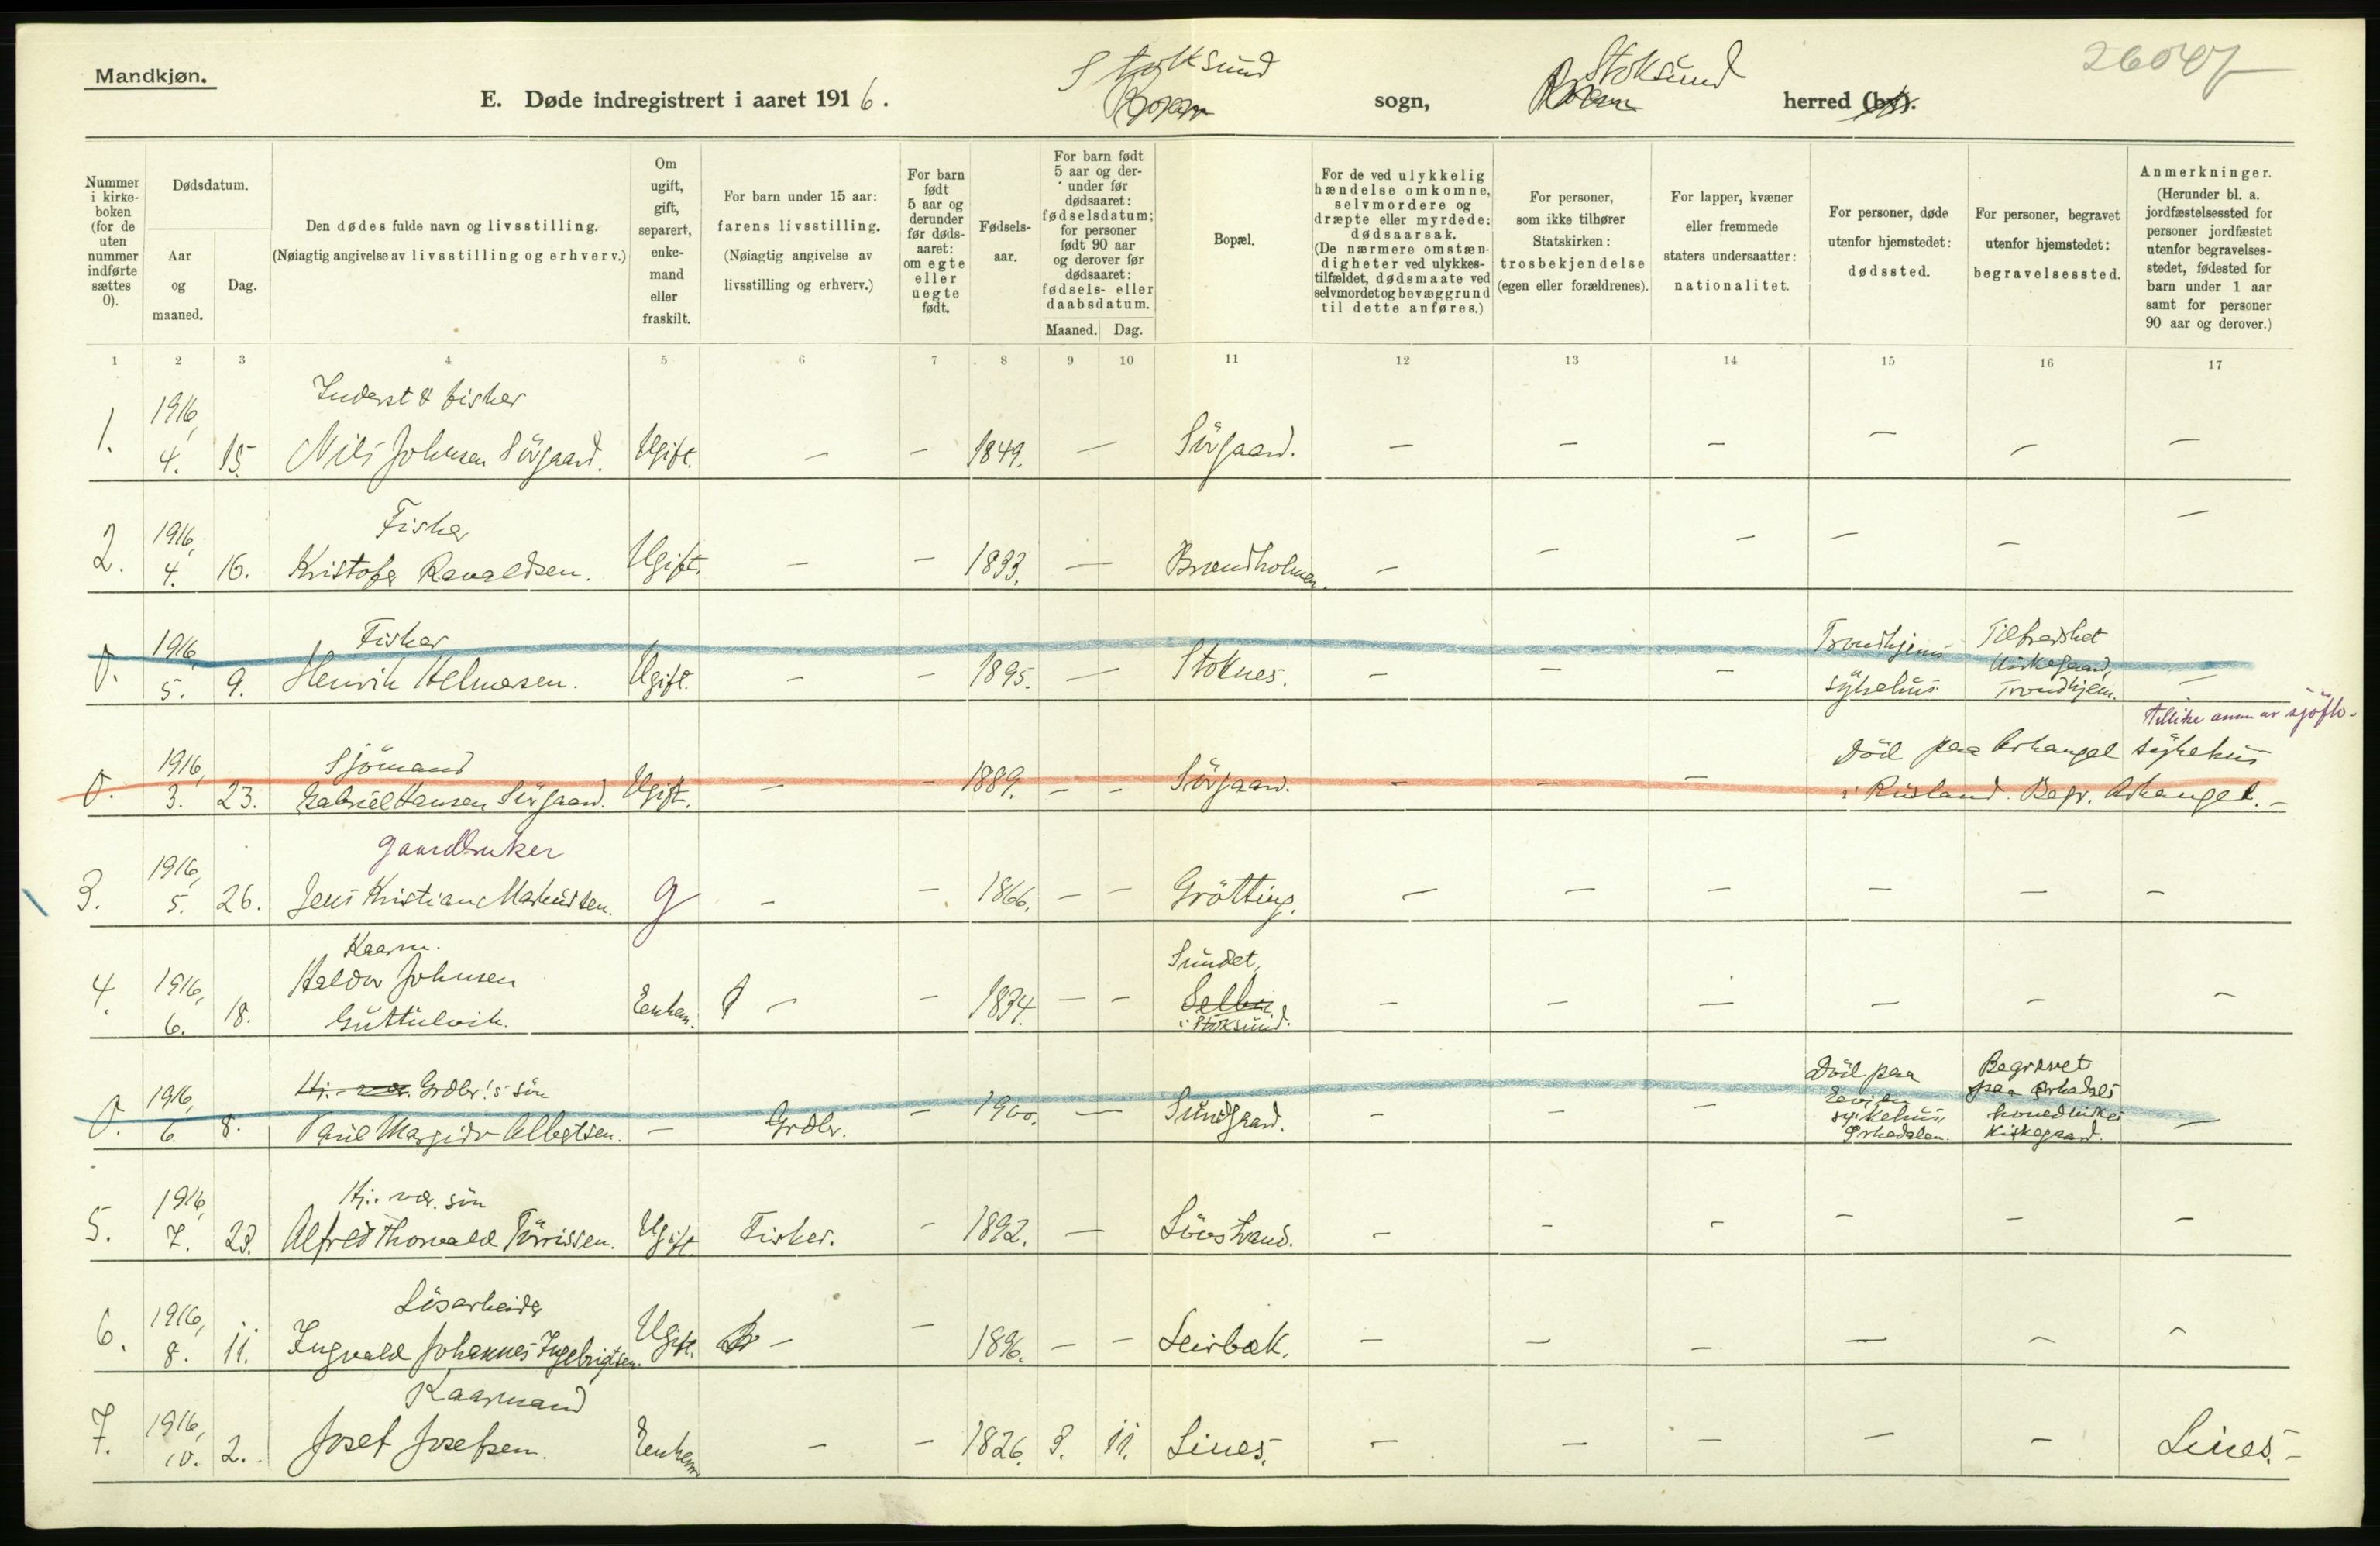 Mandkjøn.
26047
E. Døde indregistrert i aaret 1916. Stoksund sogn, Stoksund herred (by).
Nummer i kirkeboken (for de uten nummer indførte sættes 0).
Dødsdatum.
Aar og maaned.
Dag.
Den dødes fulde navn og livsstilling.
(Nøiagtig angivelse av livsstilling og erhverv.)
Om ugift, gift, separert, enkemand eller fraskilt.
For barn under 15 aar: farens livsstilling.
(Nøiagtig angivelse av livsstilling og erhverv.)
For barn født 5 aar og derunder før dødsaaret: om egte eller uegte født.
Fødselsaar.
For barn født 5 aar og derunder før dødsaaret: fødselsdatum; for personer født 90 aar og derover før dødsaaret: fødsels- eller daabsdatum.
Maaned. Dag.
Bopæl.
For de ved ulykkelig hændelse omkomne, selvmordere og dræpte eller myrdede: dødsaarsak.
(De nærmere omstændigheter ved ulykkestilfældet, dødsmaate ved selvmordet og bevæggrund til dette anføres.)
For personer, som ikke tilhører Statskirken: trosbekjendelse (egen eller forældrenes).
For lapper, kvæner eller fremmede staters undersaatter: nationalitet.
For personer, døde utenfor hjemstedet: dødssted.
For personer, begravet utenfor hjemstedet: begravelsessted.
Anmerkninger.
(Herunder bl. a. jordfæstelsessted for personer jordfæstet utenfor begravelsesstedet, fødested for barn under 1 aar samt for personer 90 aar og derover.)
1 2 3 4 5 6 7 8 9 10 11 12 13 14 15 16 17
Inderst & fisker
1. 1916, 4. 15. Nils Johnsen Sörgaard. Ugift. — — 1849. — Sörgaard. — — — — — —
Fisker
2. 1916, 4. 16. Kristofer Ravaldsen. Ugift. — — 1893. — Brandholmen. — — — — — —
Fisker
0. 1916, 5. 9. Henrik Helmersen. Ugift. — — 1895. — Stoknes. — — — Trondhjems sykehus. Tilfredshet kirkegaard, Trondhjem. —
Sjömand
0. 1916, 3. 23. Gabriel Hansen Sörgaard. Ugift. — — 1889. — — Sörgaard. — — — Död paa Arkangel sykehus
i Rusland. Begr. Arkangel. —
Gaardbruker
3. 1916, 5. 26. Jens Kristian Markussen. g — — 1866. — — Grötting. — — — — — —
Kaarm.
4. 1916, 6. 18. Haldor Johnsen Guttulvik. Enkem. — — 1834. — — Sundet, i Stoksund. — — — — — —
Grdbr.'s sön
0. 1916, 6. 8. Paul Margido Albertsen. — Grdbr. — 1900. — Sundgaard. — — — Död paa sykehus, Orkedalen. Begravet paa Orkedals hovedkirkes kirkegaard. —
Hj. vær. sön
5. 1916, 7. 23. Alfred Thorvald Törrissen. Ugift. Fisker. — 1892. — Lövstrand. — — — — — —
Lösarbeider
6. 1916, 8. 11. Ingvald Johannes Ingebrigtsen. Ugift. — — 1896. — — Leirbæk. — — — — — —
Kaarmand
7. 1916, 10. 2. Josef Josefsen. Enkem. — — 1826. 3. 11. Lines. — — — — — Lines. —